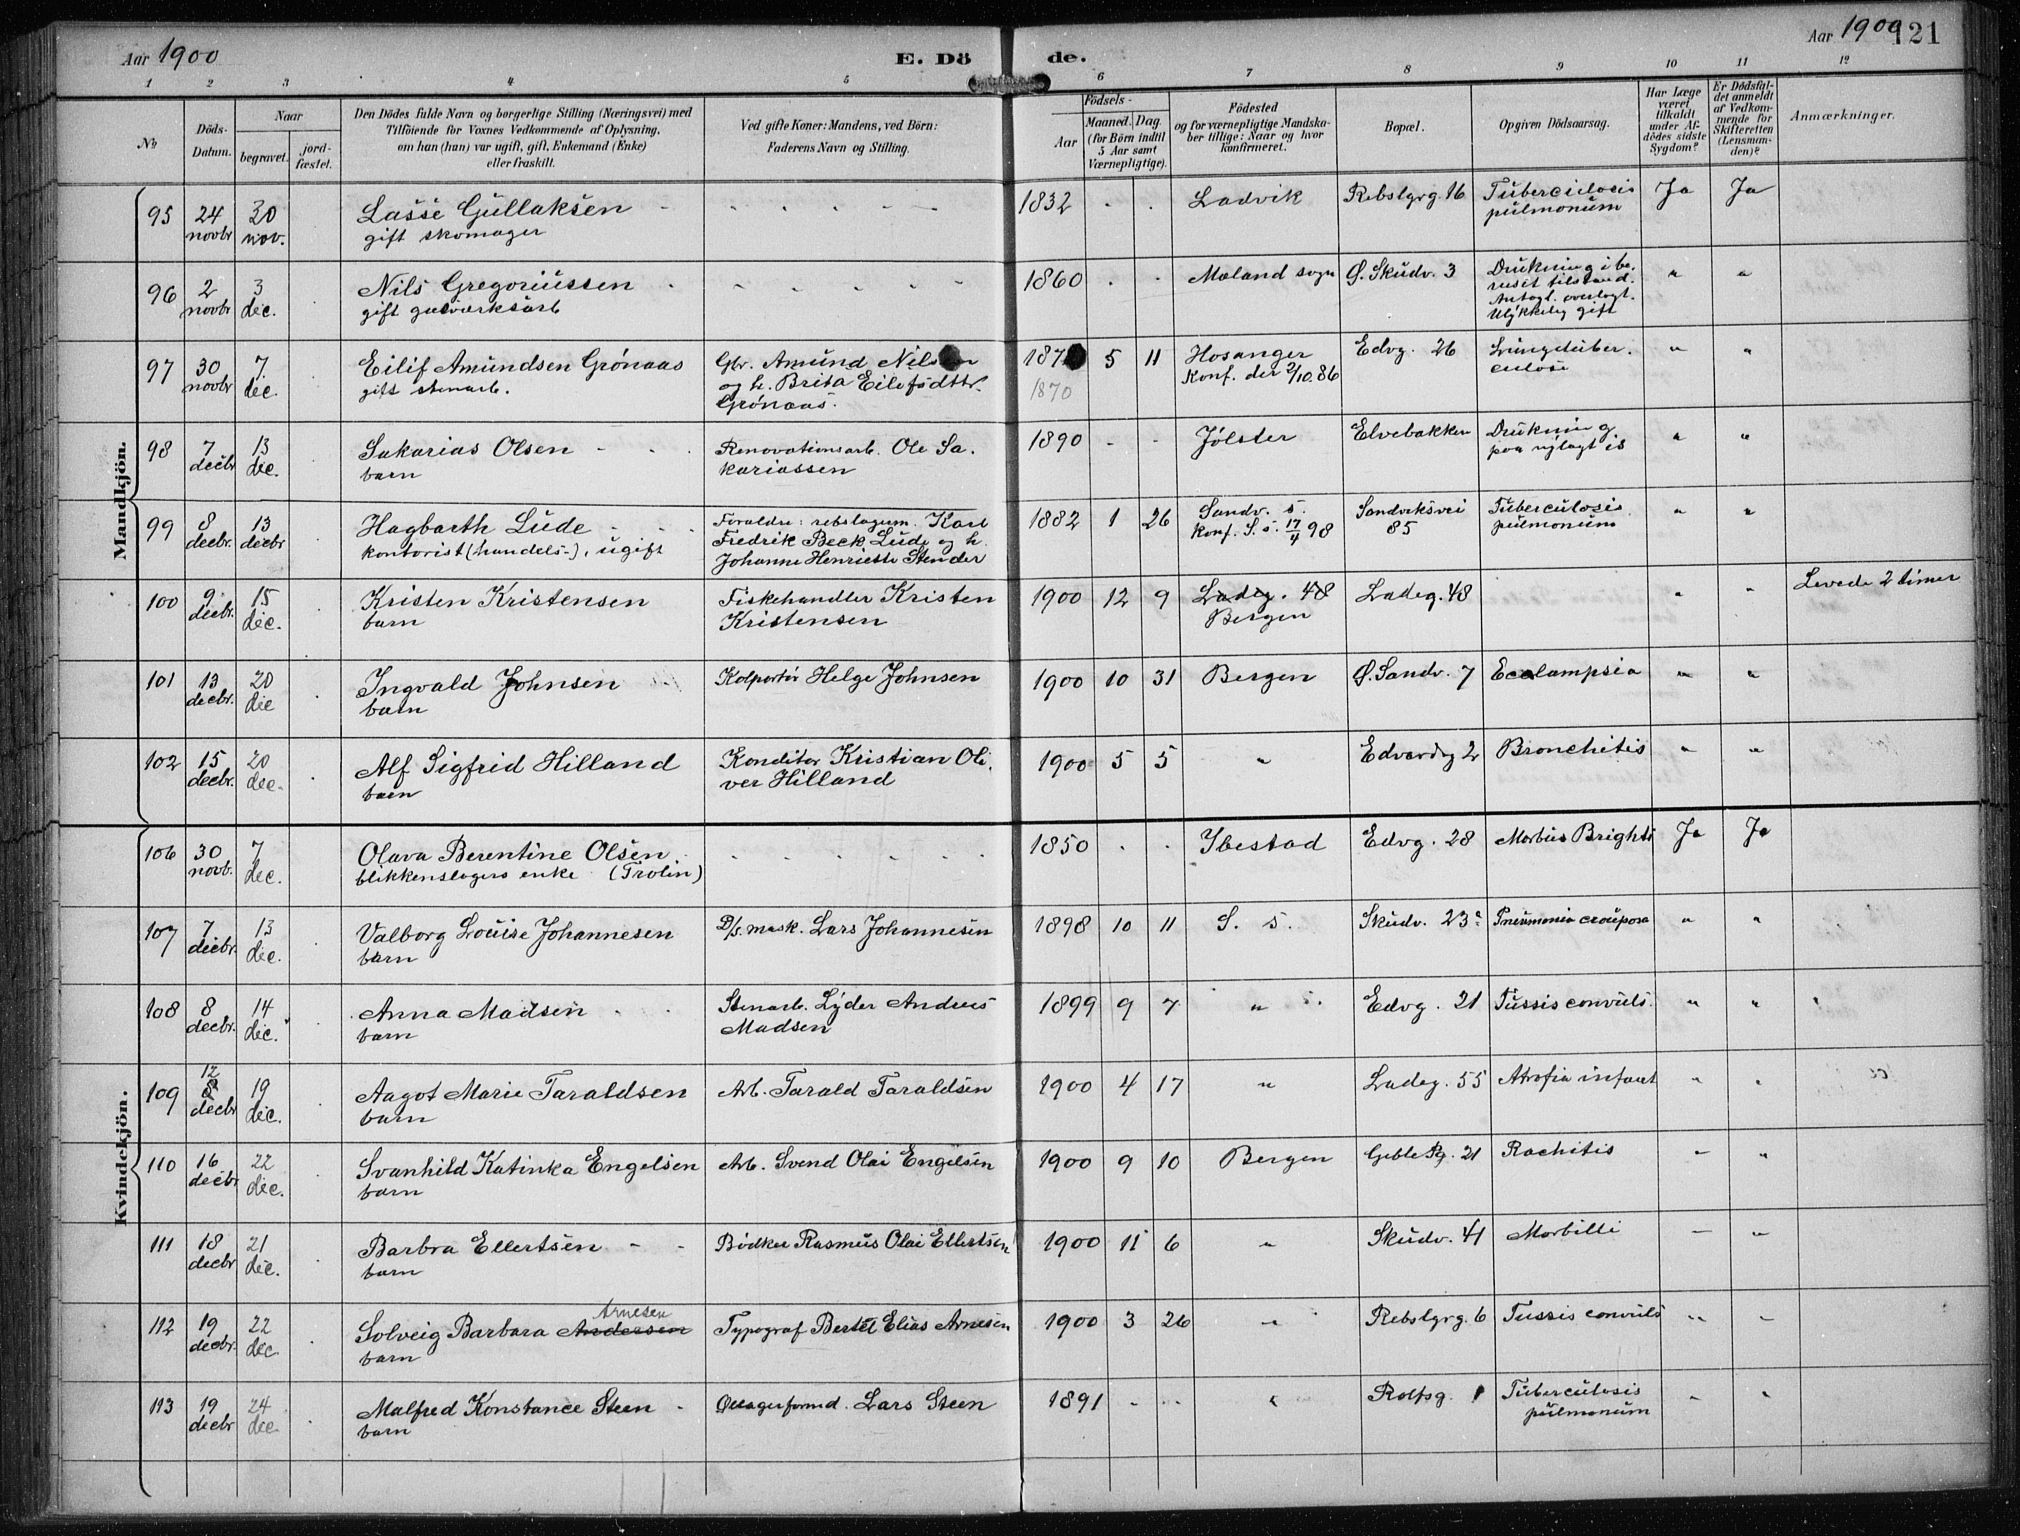 Aar 1900
E. Dö
de.
Aar 1900
121
1 2 3 4 5 6 7 8 9 10 11 12
No
Döds-Datum.
Naar
begravet.
jord-fæstet.
Den Dödes fulde Navn og borgerlige Stilling (Næringsvei) med
Tilföiende for Voxnes Vedkommende af Oplysning,
om han (hun) var ugift, gift, Enkemand (Enke)
eller fraskilt.
Ved gifte Koner: Mandens, ved Börn:
Faderens Navn og Stilling.
Födsels-
Aar
Maaned. Dag
(for Börn indtil
5 Aar samt
Værnepligtige).
Födested
og for værnepligtige Mandska-
ber tillige: Naar og hvor
konfirmeret.
Bopæl.
Opgiven Dödsaarsag.
Har Læge
været
tilkaldt
under Af-
dödes sidste
Sygdom?
Er Dödsfal-
det anmeldt
af Vedkom-
mende for
Skifteretten
(Lensman-
den)?
Anmærkninger.
Mandkjön.
95 24 novbr 30 nov. Lasse Gullaksen - - - - - - 1832 . . Ladvik Rebslgrg. 16 Tuberculosis Ja Ja
gift skomager pulmonum
96 2 novbr 3 dec. Nils Gregoriussen - - - - - 1860 . . Maland sogn Ø. Skudv. 3 Drukning i be- " "
gift gasværksarb ruset tilstand.
Antagl. overlagt.
Ulykkelig gift
97 30 novbr 7 dec. Eilif Amundsen Grønaas Gbr. Amund Nilsen 187 5 11 Hosanger Edvg. 26 Lungetuber- " "
gift stenarb. og h. Brita Eilefsdttr. 1870 Konf. der 3/10.86 culose
Grønaas.
98 7 decbr 13 dec. Sakarias Olsen - - - Renovationsarb. Ole Sa- 1890 - - Jølster Elvebakken Drukning " "
barn kariassen paa nylagt is
99 8 decbr. 13 decbr Hagbarth Lude - - - Foraldre: rebslagerm. Karl 1882 1 26 Sandv. s. Sandviksvei Tuberculosis " "
kontorist (handels-), ugift Fredrik Beck Lude og h. konf. S. s. 17/4 98 85 pulmonum
Johanne Henriette Stender
100 9 decbr. 15 dec. Kristen Kristensen Fiskehandler Kristen 1900 12 9 Ladeg. 48 Ladeg. 48 " " Levede 2 timer
barn Kristensen Bergen
101 13 decbr. 20 dec Ingvald Johnsen Kolportør Helge Johnsen 1900 10 31 Bergen Ø. Sandv. 7 Eclampsia " "
barn
102 15 decbr. 20 dec. Alf Sigfrid Hilland Konditor Kristian Oli- 1900 5 5 " Edvardsg 2 Bronchitis " "
barn ver Hilland
Kvindekjön.
106 30 novb. 7 dec. Olava Berentine Olsen. - - - - - - 1850 . . Ibestad Edvg. 28 Morbus Brighti Ja Ja
blikkenslagers enke (Trolin)
107 7 decbr. 13 dec. Valborg Louise Johannesen D/s. mask. Lars Johannesen 1898 10 11 S. s. Skudv. 23a Pneumonia crouposa " "
barn
108 8 decbr. 14 dec. Anna Madsen - - Stenarb. Lyder Andreas 1899 9 7 " s. Edvg. 21 Tussis convuls. " "
barn Madsen
109 12 8 decbr 19 dec. Aagot Marie Taraldsen Arb. Tarald Taraldsen 1900 4 17 " Ladeg. 55 Atrofia infant " "
barn
110 16 decbr 22 dec. Svanhild Katinka Engelsen Arb. Svend Olai Engelsen 1900 9 10 Bergen Geble Pg. 21 Rachitis " "
barn
111 18 decbr 21 dec. Barbra Ellertsen - - Bødker Rasmus Olai Ellertsen 1900 11 6 " Skudv. 41 Morbilli - "
barn
Arnesen
112 19 decbr. 22 dec. Solveig Barbara Andersen Typograf Bertel Elias Arnesen 1900 3 26 " Rebslgrg. 6 Tussis convuls " "
barn
113 19 decbr 24 dec Malfred Konstance Steen - Opsagerformd. Lars Steen 1891 - - " Rolfsg. 1 Tuberculosis - "
barn pulmonum